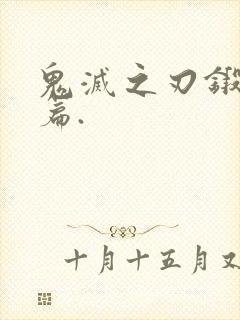 鬼滅之刃鍛
篇.
十月十五月又